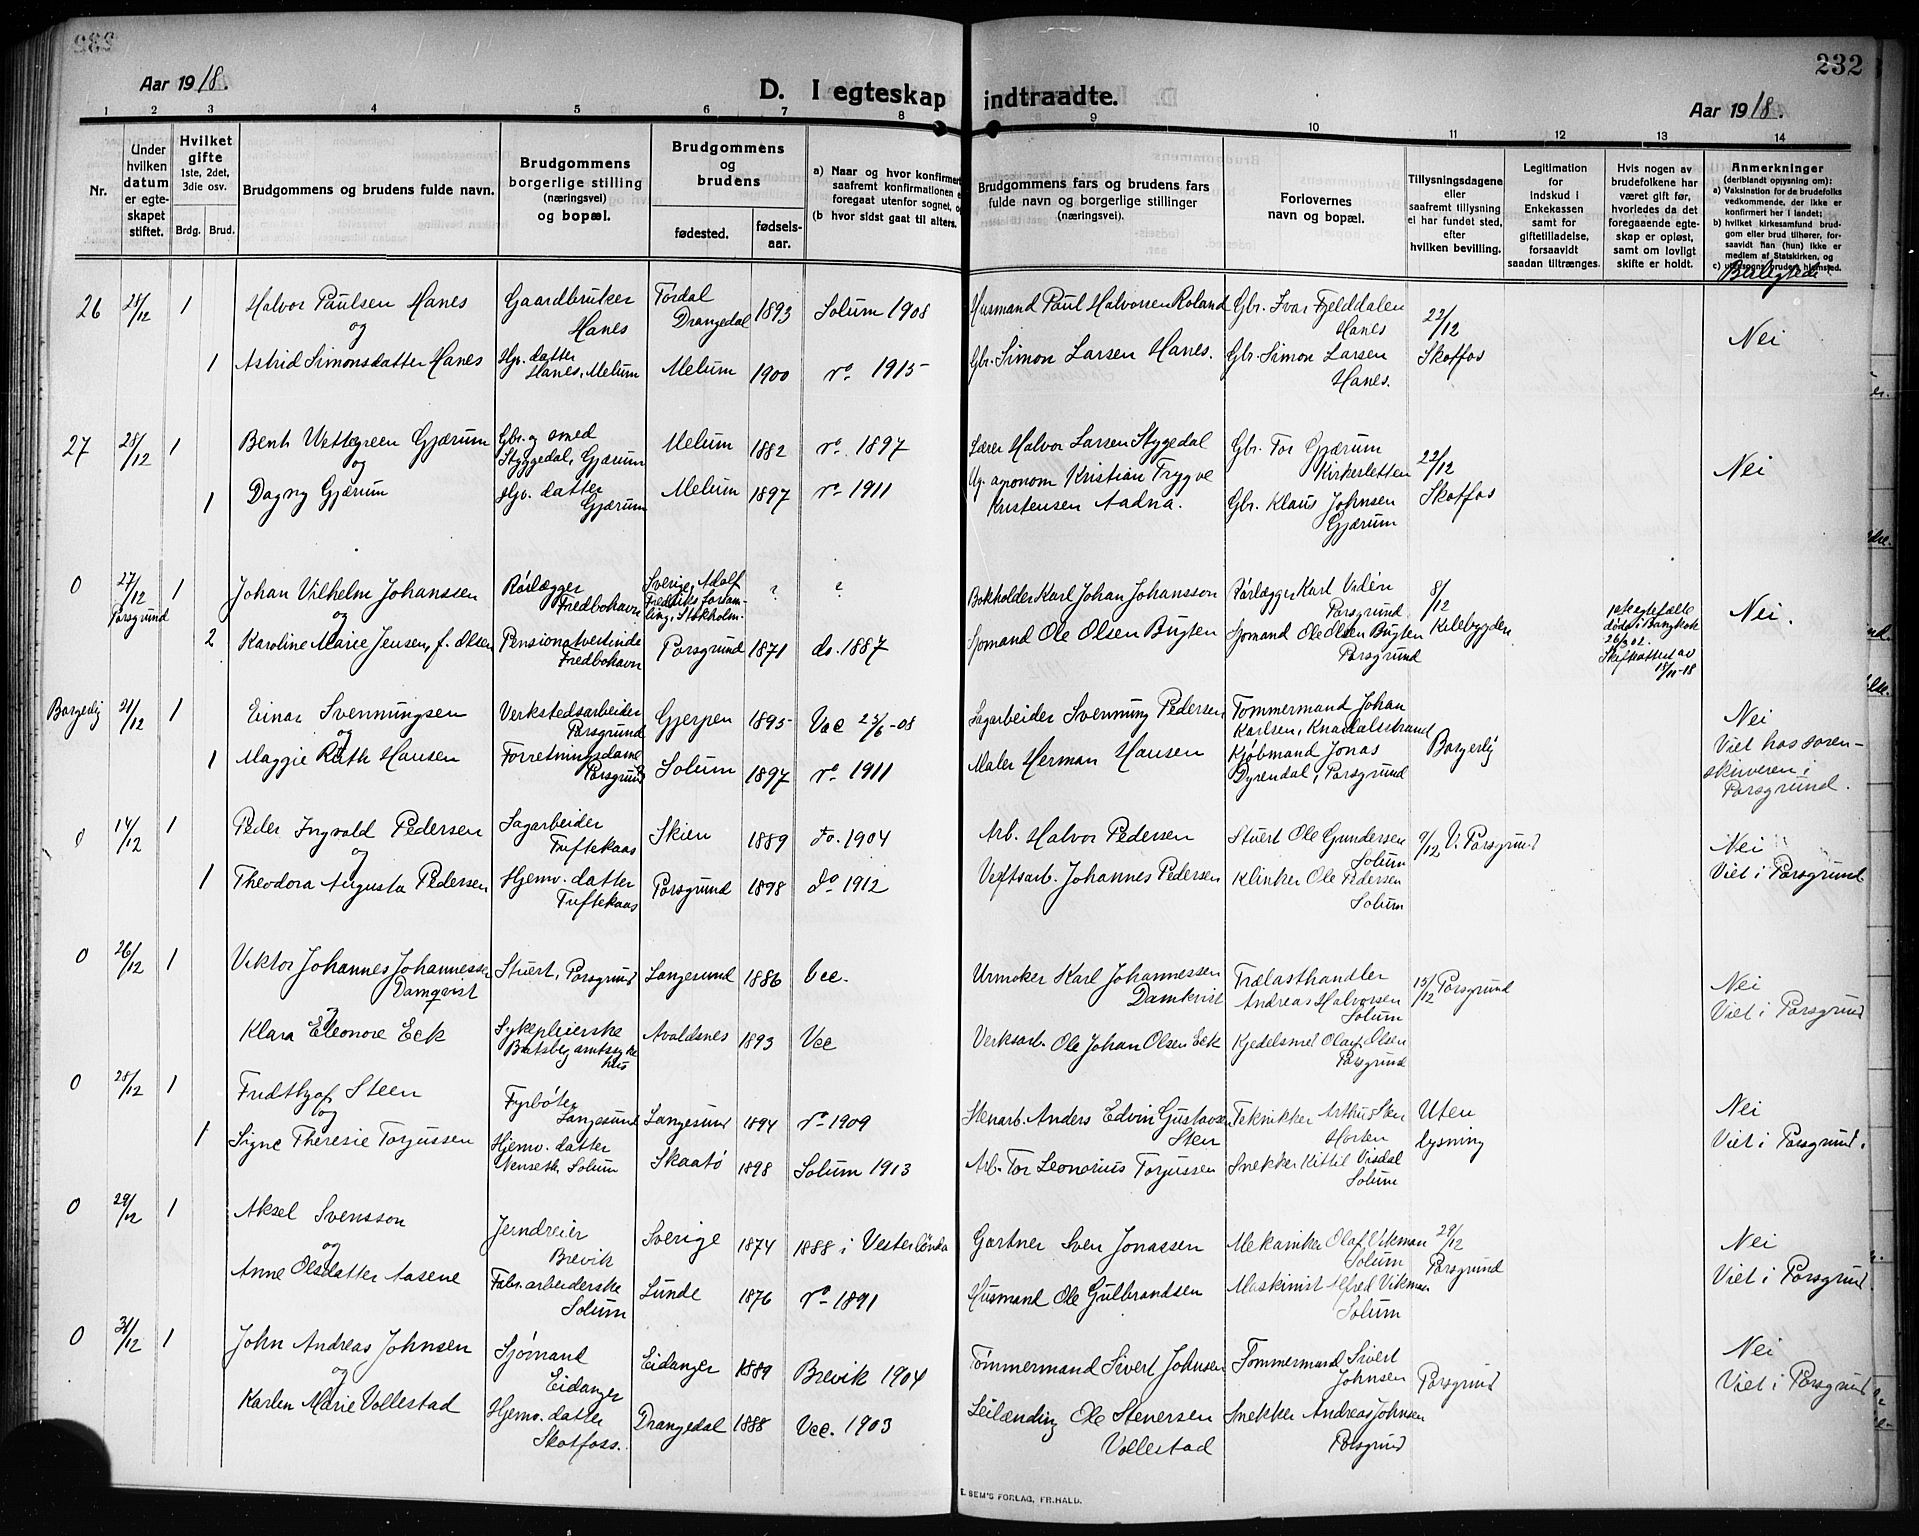 232
Aar 1918.
D. I egteskap indtraadte.
Aar 1918.
1 2 3 4 5 6 7 8 9 10 11 12 13 14
Nr.
Under hvilken datum er egteskapet stiftet.
Hvilket gifte 1ste, 2det, 3die osv.
Brdg. Brud.
Brudgommens og brudens fulde navn.
Brudgommens borgerlige stilling (næringsvei) og bopæl.
Brudgommens og brudens
fødested.
fødselsaar.
a) Naar og hvor konfirmert
saafremt konfirmationen e
foregaat utenfor sognet, o
(b hvor sidst gaat til alters.
Brudgommens fars og brudens fars
fulde navn og borgerlige stillinger
(næringsvei).
Forlovernes
navn og bopæl.
Tillysningsdagene
eller
saafremt tillysning
ei har fundet sted,
efter
hvilken bevilling.
Legitimation
for
indskud i
Enkekassen
samt for
giftetilladelse,
forsaavidt
saadan tiltrænges.
Hvis nogen av
brudefolkene har
været gift før,
hvorledes da det
foregaaende egte-
skap er opløst,
samt om lovligt
skifte er holdt.
Anmerkninger
(deriblandt opysning om):
a) Vaksination for de brudefolks
vedkommende, der ikke er
konfirmert her i landet;
b) hvilket kirkesamfund brud-
gom eller brud tilhører, for-
saavidt han (hun) ikke er
medlem av Statskirken, av
Beslegtede
26 28/12 1 Halvor Paulsen Hanes Gaardbruker Hanes Tørdal Drangedal 1893 Solum 1908 Husmand Paul Halvorsen Roland Gbr. Ivar Fjelddalen Hanes 22/12 Skotfos Nei
og
1 Astrid Simonsdatter Hanes Hjv. datter Hanes, Melum Melum 1900 do 1915 Gbr. Simon Larsen Hanes. Gbr. Simon Larsen Hanes.
27 28/12 1 Bent Wettegreen Gjærum Gbr. og smed Styggedal, Gjærum Melum 1882 do. 1897 Lærer Halvor Larsen Stygedal Gbr. Tor Gjærum Kirkerletten 22/12 Skotfos Nei
og
1 Dagny Gjærum Hjv. datter Gjærum Melum 1897 do 1911 Ug. agronom Kristian Trygve Kristensen Aadna. Gbr. Klaus Johnsen Gjærum
0 27/12 Porsgrund 1 Johan Vilhelm Johanssen Rørlægger Fredbohavn Sverige, Adolf Fredriks forsamling, Stokholm. ? ? Bokholder Karl Johan Johansson Rørlægger Karl Vidén Porsgrund 8/12 Kilebygden Nei.
og
2 Karoline Marie Jensen, f. Olsen Pensionatvertinde Fredbohavn Porsgrund 1871 do. 1887 Sjømand Ole Olsen Bugten Sjømand Ole Olsen Bugten Porsgrund 1ste egtefælle døde i Bangkok 26/3 02. Skifteattest av 15/11-18
Borgerlig 21/12 1 Einar Svenningsen Verkstedsarbeider Porsgrund Gjerpen 1895 Vac 25/6-08 Sagarbeider Svenning Pedersen, Tømmermand Johan Karlsen, Knardalstrand Borgerlig Nei
og
1 Maggie Ruth Hansen Forretningsdame Porsgrund Solum 1897 do 1911 Maler Herman Hansen Kjøbmand Jonas Dyrendal, Porsgrund Viet hos sorenskriveren i Porsgrund.
0 14/12 1 Peder Ingvald Pedersen Sagarbeider Tuftekaas Skien 1889 Do. 1904 Arb. Halvor Pedersen Stuert Ole Gundersen Solum 9/12 V. Porsgrund Nei
og
1 Theodora Augusta Pedersen Hjemv. datter Tuftekaas Porsgrund 1898 do 1912 Verftsarb. Johannes Pedersen Klinker Ole Pedersen Solum Viet i Porsgrund
0 26/12 1 Viktor Johannes Johannessen Damqvist Stuert, Porsgrund Langesund 1886 Vac. Urmaker Karl Johannessen Damkvist Trælasthandler Andreas Halvorsen Solum 15/12 Porsgrund Nei
Klara Eleonore Eek Sykepleierske Bratsberg amtssykehus Avaldsnes 1893 Vac Verksarb. Ole Johan Olsen Eek Kjedelsmed Olaf Olsen Porsgrund Viet i Porsgrund
0 28/12 1 Fridthjof Steen Fyrbøter Langesund Langesund 1894 do 1909 Stenarb. Anders Edvin Gustavsen Sten Teknikker Arthur Sten Horten Uten lysning Nei
og
1 Signe Theresie Torjussen Hjemv. datter Nenseth, Solum Skaatø 1898 Solum 1913 Arb. Tor Leonsius Torjussen Snekker Kittil Visdal Solum Viet i Porsgrund.
0 29/12 1 Aksel Svensson Jerndreier Brevik Sverige 1874 1888 i Vester Gönda Gartner Sven Jonassen Mekaniker Olaf Vikman Solum 29/12 Porsgrund Nei
og
Anne Olsdatter Aasene Fabr. arbeiderske Solum Lunde 1876 do 1891 Husmand Ole Gulbrandsen Maskinist Alfred Vikman Solum Viet i Porsgrund
0 31/12 1 John Andreas Johnsen Sjømand Eidanger Eidanger 1889 Brevik 1904 Tømmermand Sivert Johnsen Tømmermand Sivert Johnsen Porsgrund Nei
og
Karlen Marie Vollestad Hjemv. datter Skotfoss. Drangedal 1888 Vac. 1903 Leilænding Ole Stenersen Vollestad Snekker Andreas Johnsen Porsgrund Viet i Porsgrund
E. SEM'S FORLAG, FR.HALD.